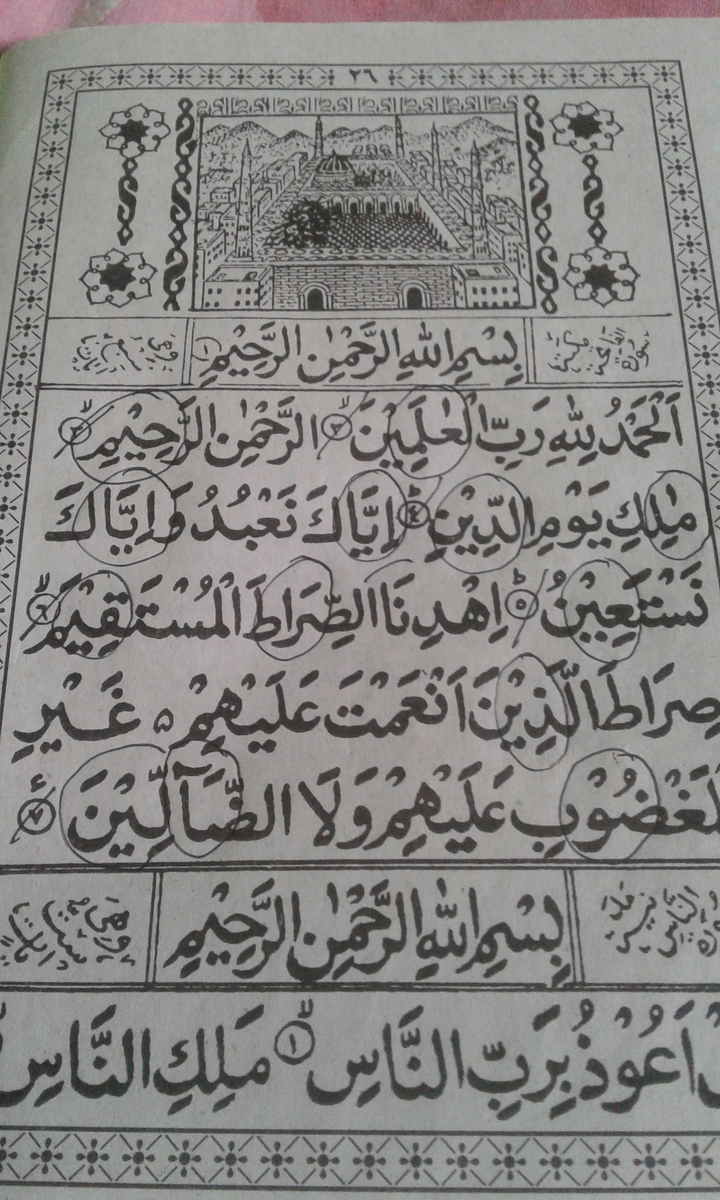 ٢٦
بِسْمِ اللهِ الرَّحْمٰنِ الرَّحِيْمِ ١
اَلْحَمْدُ لِلّٰهِ رَبِّ الْعٰلَمِيْنَ ٢ الرَّحْمٰنِ الرَّحِيْمِ ٣
مٰلِكِ يَوْمِ الدِّيْنِ ٤ اِيَّاكَ نَعْبُدُ وَاِيَّاكَ
نَسْتَعِيْنُ ٥ اِهْدِنَا الصِّرَاطَ الْمُسْتَقِيْمَ ٦
صِرَاطَ الَّذِيْنَ اَنْعَمْتَ عَلَيْهِمْ ۵ غَيْرِ
لْمَغْضُوْبِ عَلَيْهِمْ وَلَا الضَّآلِّيْنَ ٧
بِسْمِ اللهِ الرَّحْمٰنِ الرَّحِيْمِ
اَعُوْذُ بِرَبِّ النَّاسِ ١ مَلِكِ النَّاسِ